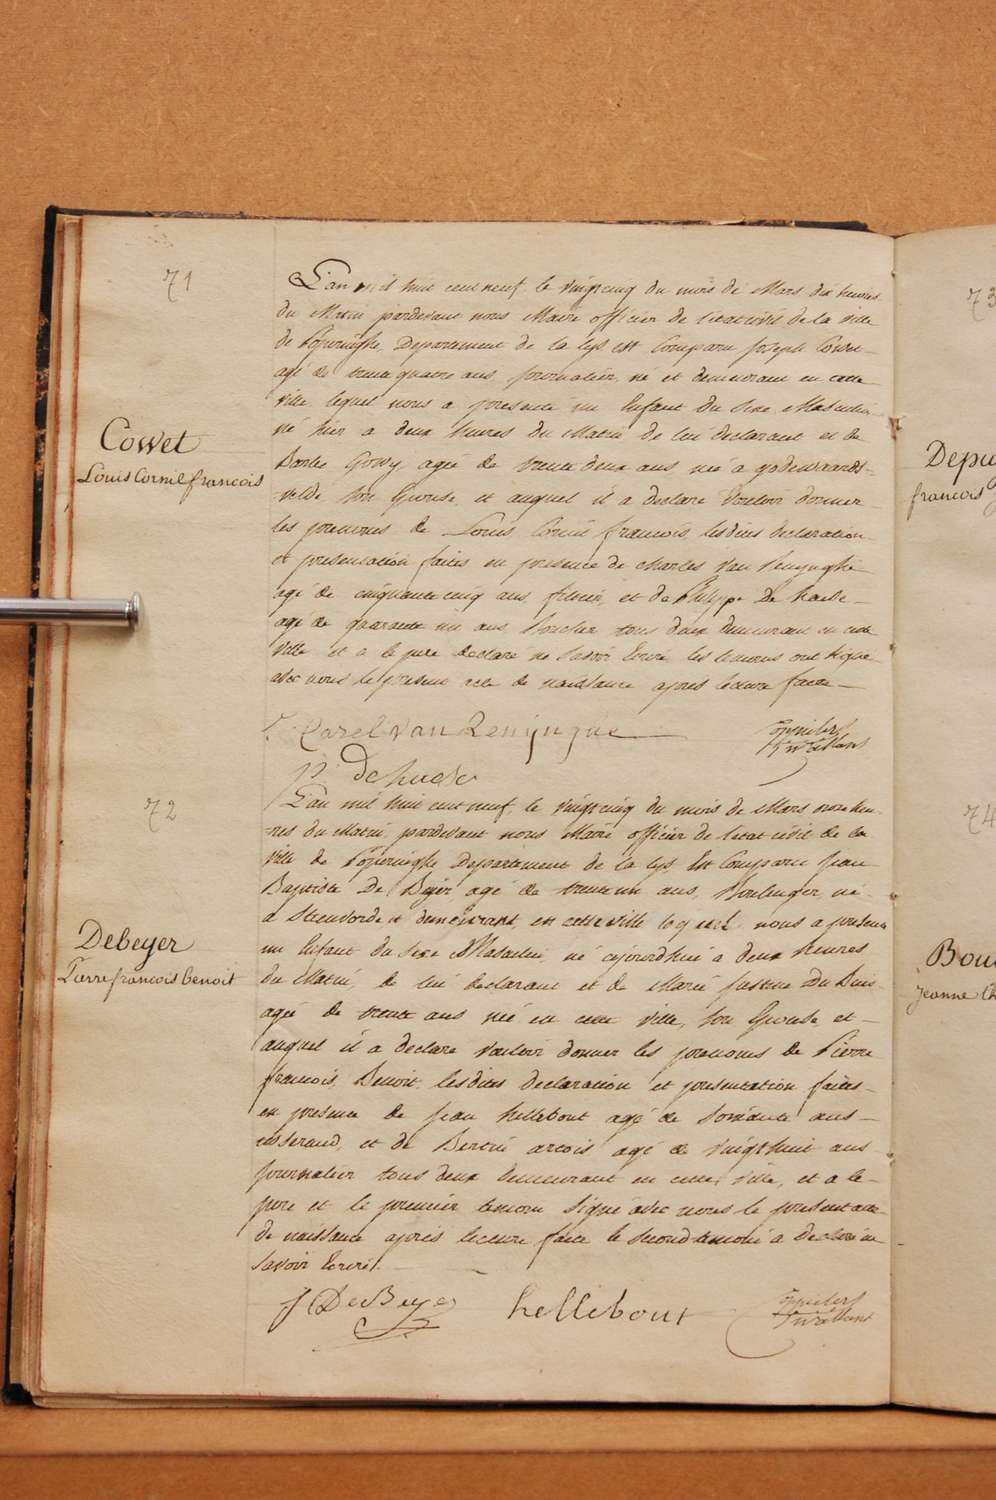 71
L'an mil huit cent neuf, le vingtcinq du mois de Mars dix heures
du Matin pardevant nous Maire officier de l'etat civil de la ville
de Poperinghe, Departement de la Lys est Comparu Joseph Cowet
agé de trente quatre ans, journalier, né et demeurant en cette
ville, lequel nous a presenté un Enfant du Sexe Masculin
né hier a deux heures du Matin de lui declarant et de
Barbe Gowy, agée de trente deux ans née a godewaards-
velde Son Epouse, et auquel il a declaré vouloir donner
les prenoms de Louis, Cornil françois, lesdites declaration
et presentation faites en presence de Charles Van Renynghe
agé de cinquante cinq ans, et de Philippe De haede
agé de quarante un ans, Boucher tous deux demeurant en cette
ville et a le pere declaré ne Savoir Ecrire les temoins ont Signé
avec nous le present acte de naissance après lecture faite
Cowet
Louis Cornil francois
Carel van Renijnghe
p. dehaede
72
L'an mil huit cent neuf, le vingtcinq du mois de Mars onze heu-
res du Matin, pardevant nous Maire officier de l'etat civil de la
ville de Poperinghe Departement de la Lys, Est Comparu Jean
Baptiste De Beyer, agé de trente un ans, Boulenger, né
a Steenvorde et demeurant en cette ville lequel nous a presenté
un Enfant du Sexe Masculin, né aujourd'hui a deux heures
du Matin, de lui declarant et de Marie Justine Du Buis
agée de trente ans née en cette ville, Son Epouse, et
auquel il a declaré vouloir donner les prenoms de Pierre
francois, Benoit, lesdites declaration et presentation faites
en presence de Jean hellebout agé de Soixante ans
tisserand, et de Bertin arcois agé de vingt huit ans
journalier tous deux demeurant en cette ville, et a le
pere et le premier temoin Signé avec nous le present acte
de naissance après lecture faite le Second temoin a declaré ne
Savoir Ecrire.
Debeyer
Pierre francois benoit
J DeBeyer hellebout
73
Depu
francois
74
Bou
Jeanne